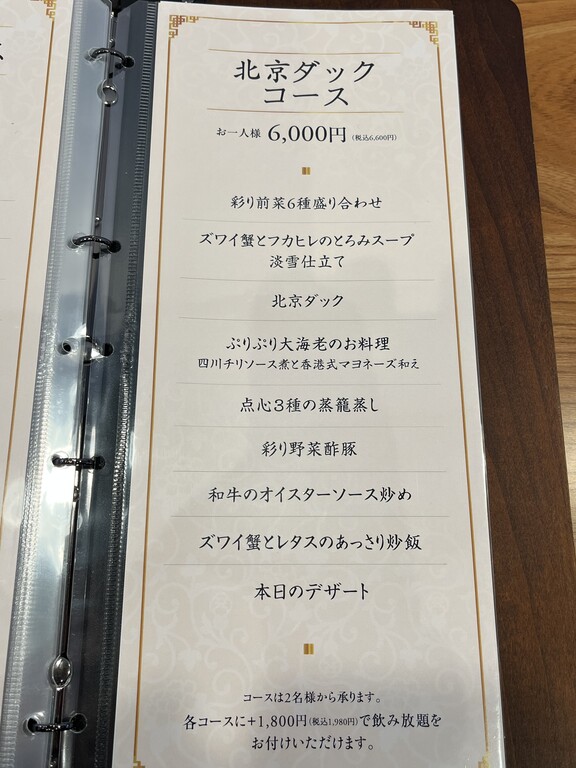 北京ダック
コース
お一人様 6,000円(税込6,600円)
彩り前菜6種盛り合わせ
ズワイ蟹とフカヒレのとろみスープ
淡雪仕立て
北京ダック
ぷりぷり大海老のお料理
四川チリソース煮と香港式マヨネーズ和え
点心3種の蒸籠蒸し
彩り野菜酢豚
和牛のオイスターソース炒め
ズワイ蟹とレタスのあっさり炒飯
本日のデザート
コースは2名様から承ります。
各コースに+1,800円(税込1,980円)で飲み放題を
お付けいただけます。